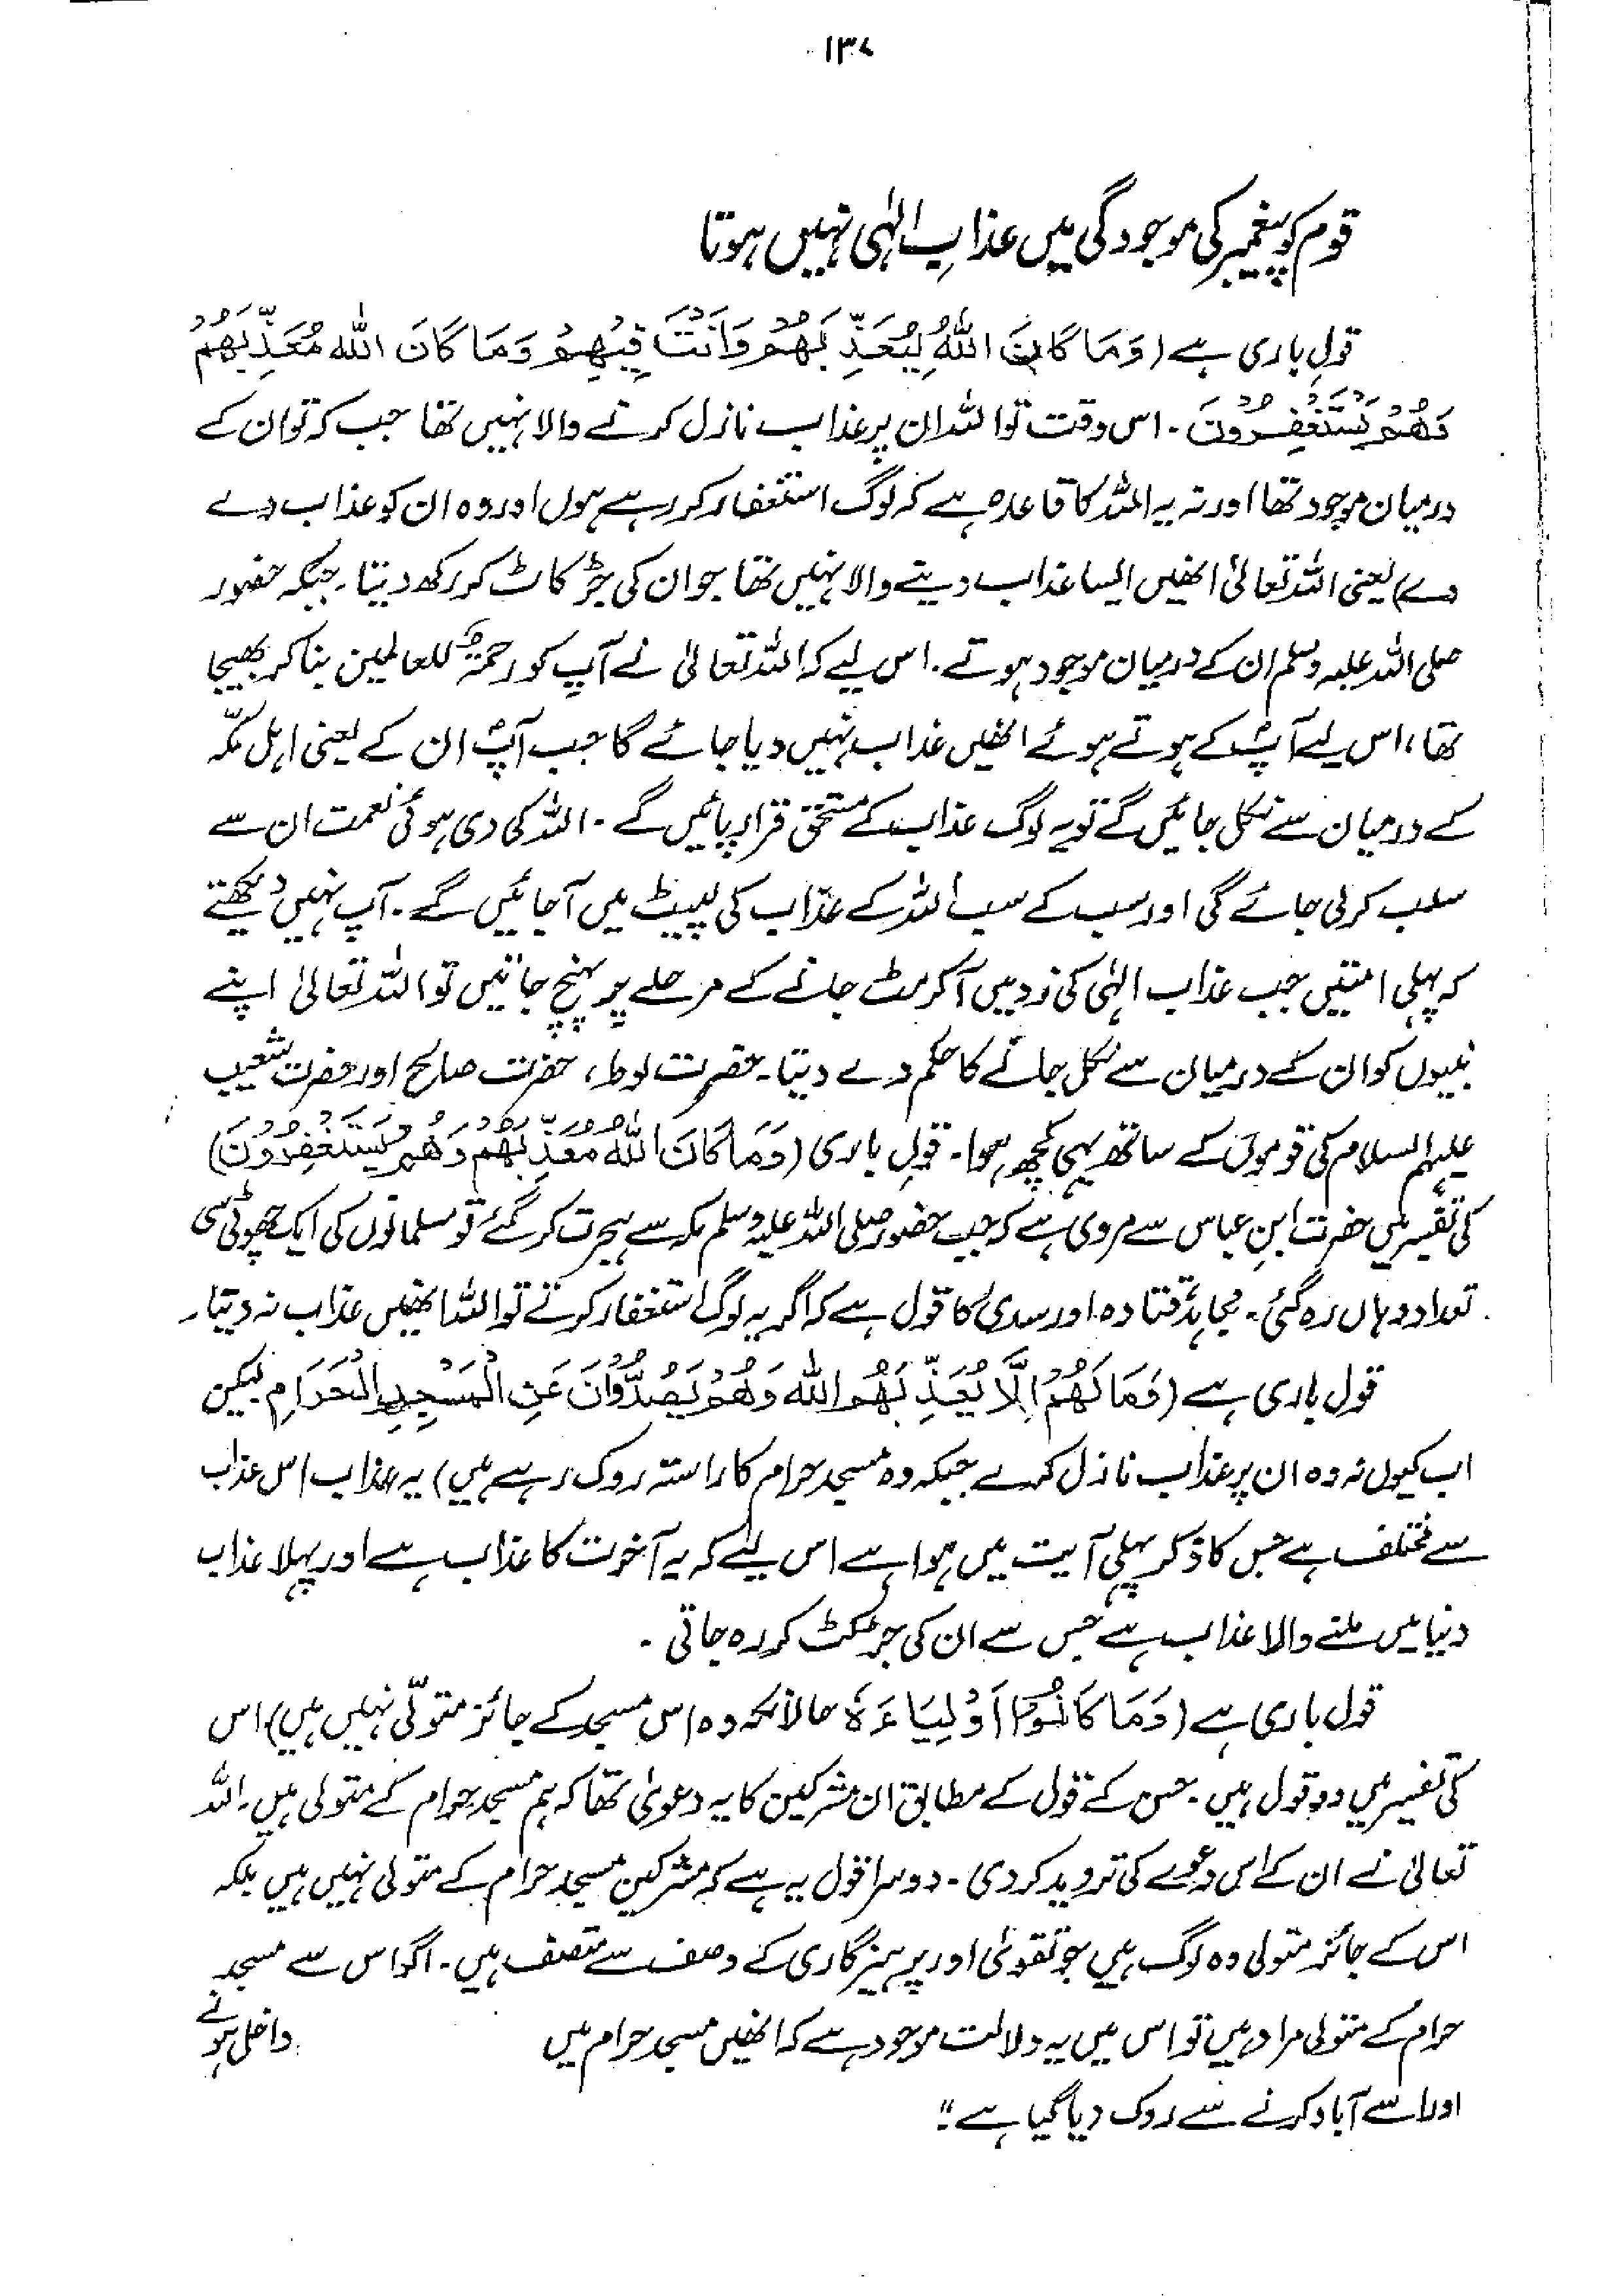 ۱۳۷
قوم کو پیغمبر کی موجودگی میں عذابِ الٰہی نہیں ہوتا
قولِ باری ہے (وَمَا كَانَ اللّٰهُ لِيُعَذِّبَهُمْ وَاَنْتَ فِيْهِمْ وَمَا كَانَ اللّٰهُ مُعَذِّبَهُمْ
وَهُمْ يَسْتَغْفِرُوْنَ ۔ اس وقت تو اللہ ان پر عذاب نازل کرنے والا نہیں تھا جب کہ تو ان کے
درمیان موجود تھا اور نہ یہ اللہ کا قاعدہ ہے کہ لوگ استغفار کر رہے ہوں اور وہ ان کو عذاب دے
دے) یعنی اللہ تعالیٰ انھیں ایسا عذاب دینے والا نہیں تھا جو ان کی جڑ کاٹ کر رکھ دیتا۔ جبکہ حضور
صلی اللہ علیہ وسلم ان کے درمیان موجود ہوتے۔ اس لیے کہ اللہ تعالیٰ نے آپ کو رحمۃ للعالمین بنا کر بھیجا
تھا، اس لیے آپؐ کے ہوتے ہوئے انھیں عذاب نہیں دیا جائے گا جب آپؐ ان کے یعنی اہل مکّہ
کے درمیان سے نکل جائیں گے تو یہ لوگ عذاب کے مستحق قرار پائیں گے ۔ اللہ کی دی ہوئی نعمت ان سے
سلب کر لی جائے گی اور سب کے سب اللہ کے عذاب کی لپیٹ میں آ جائیں گے ۔ آپ نہیں دیکھتے
کہ پہلی امتیں جب عذاب الٰہی کی زد میں آ کر مٹ جانے کے مرحلے پر پہنچ جاتیں تو اللہ تعالیٰ اپنے
نبیوں کو ان کے درمیان سے نکل جانے کا حکم دے دیتا۔ حضرت لوط، حضرت صالح اور حضرت شعیب
علیہم السلام کی قوموں کے ساتھ یہی کچھ ہوا۔ قول باری (وَمَا كَانَ اللّٰهُ مُعَذِّبَهُمْ وَهُمْ يَسْتَغْفِرُوْنَ)
کی تفسیر میں حضرت ابنِ عباس سے مروی ہے کہ جب حضور صلی اللہ علیہ وسلم مکہ سے ہجرت کر گئے تو مسلمانوں کی ایک چھوٹی سی
تعداد وہاں رہ گئی۔ مجاہدؒ قتادہ اور سدی کا قول ہے کہ اگر یہ لوگ استغفار کرتے تو اللہ انھیں عذاب نہ دیتا۔
قول باری ہے (وَمَا لَهُمْ اَلَّا يُعَذِّبَهُمُ اللّٰهُ وَهُمْ يَصُدُّوْنَ عَنِ الْمَسْجِدِ الْحَرَامِ لیکن
اب کیوں نہ وہ ان پر عذاب نازل کرے جبکہ وہ مسجد حرام کا راستہ روک رہے ہیں) یہ عذاب اس عذاب
سے مختلف ہے جس کا ذکر پہلی آیت میں ہوا ہے اس لیے کہ یہ آخرت کا عذاب ہے اور پہلا عذاب
دنیا میں ملنے والا عذاب ہے جس سے ان کی جڑ کٹ کر رہ جاتی ۔
قول باری ہے (وَمَا كَانُوْٓا اَوْلِيَآءَهٗ حالانکہ وہ اس مسجد کے جائز متولّی نہیں ہیں) اس
کی تفسیر میں دو قول ہیں۔ حسن کے قول کے مطابق ان مشرکین کا یہ دعویٰ تھا کہ ہم مسجد حرام کے متولی ہیں۔ اللہ
تعالیٰ نے ان کے اس دعوے کی تردید کر دی ۔ دوسرا قول یہ ہے کہ مشرکین مسجد حرام کے متولی نہیں ہیں بلکہ
اس کے جائز متولی وہ لوگ ہیں جو تقویٰ اور پرہیزگاری کے وصف سے متصف ہیں۔ اگر اس سے مسجد
حرام کے متولی مراد ہیں تو اس میں یہ دلالت موجود ہے کہ انھیں مسجد حرام میں داخل ہونے
اور اسے آباد کرنے سے روک دیا گیا ہے"